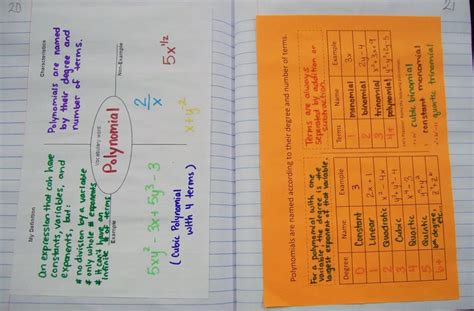 20
My Definition
An expression that can have
constants, variables, and
exponents, but
* no division by a variable
* only whole # exponents
* it can't have an
infinite # of terms.
Characteristics
Polynomials are named
by their degree and
number of terms.
Vocabulary Word
Polynomial
Example
5xy² - 3x + 5y³ - 3
(Cubic Polynomial
with 4 terms)
Non-Example
2/x
5x^1/2
x+y^-2
21
Polynomials are named according to their degree and number of terms.
For a polynomial with one
variable, the degree is the
largest exponent of that variable.
Degree Name Example
0 Constant 3
1 Linear 2x + 1
2 Quadratic
3 Cubic
4 Quartic
5 Quintic
6+
Terms are always
separated by addition or
subtraction.
Terms Name Example
1 monomial 3x
2 binomial 2y - 4
3 trinomial
4+ polynomial
cubic binomial
constant monomial
quartic trinomial